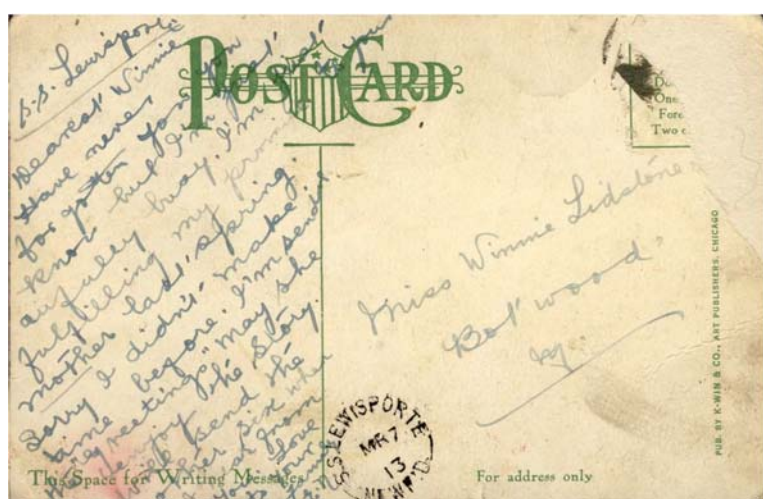 POST CARD
S.S. Lewisporte
Dearest Winnie
Have never
for gotten you you
know but I'm just
awfully busy. I'm
fulfilling my promise your
mother last spring.
Sorry I didn't make
time before. I'm sending
"greetings" may she
enjoy the story
will send the
other six when
from
Love
Do
One
Fore
Two c
Miss Winnie Lidstone
Botwood
S.S. LEWISPORTE
MR 7
13
NEWF'D
This Space for Writing Messages
For address only
PUB. BY K-WIN & CO., ART PUBLISHERS, CHICAGO